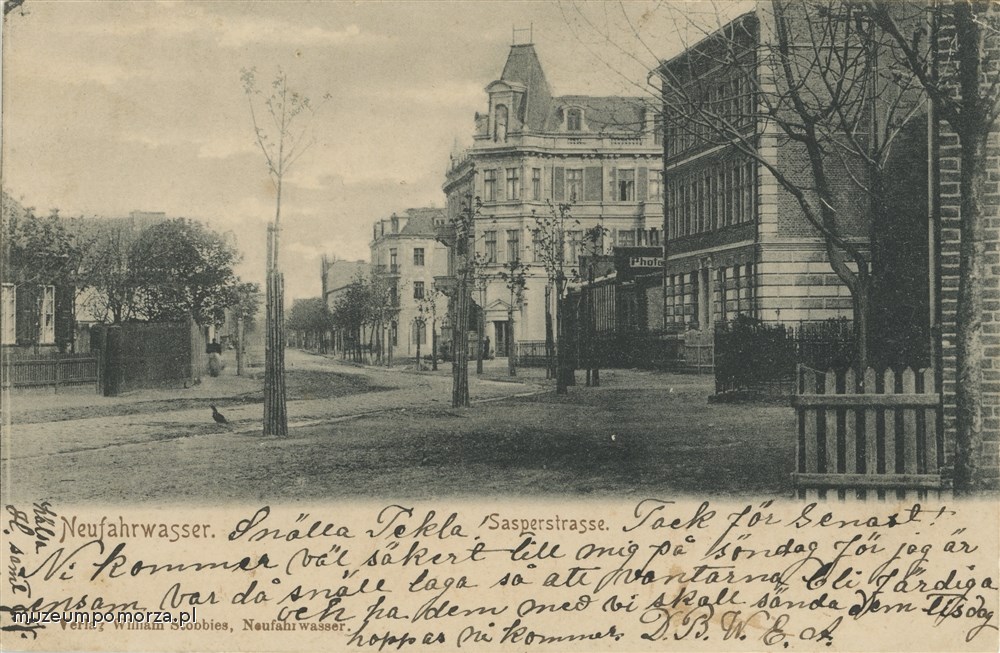 Phot
Neufahrwasser. Sasperstrasse.
Snälla Tekla! Tack för Senast!
Ni kommer väl säkert till mig på söndag för jag är
ensam, var då snäll laga så att vantarna bli färdiga
och ha dem med vi skall sända dem Tisdag
hoppas ni kommer. D. B. W. E. A.
Verlag William Stobbies, Neufahrwasser.
muzeumpomorza.pl